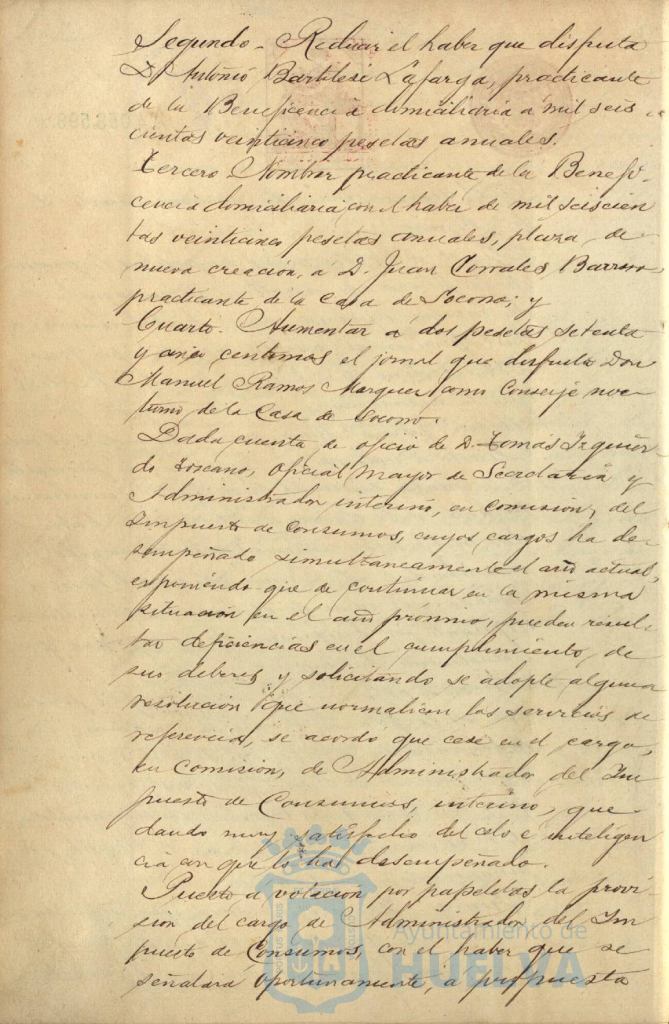 Segundo - Reducir el haber que disfruta
D. Antonio Bartilesi Lafarga, practicante
de la Beneficencia domiciliaria a mil seis
cientas veinticinco pesetas anuales.
Tercero Nombrar practicante de la Benefi-
cencia domiciliaria con el haber de mil seiscien
tas veinticinco pesetas anuales, plaza, de
nueva creación, á D. Juan Corrales Barrero
practicante de la Casa de Socorro; y
Cuarto. Aumentar á dos pesetas setenta
y cinco centimos el jornal que disfruta Don
Manuel Ramos Marquez como Conserje noc-
turno de la Casa de Socorro.
Dada cuenta de oficio de D. Tomás Izquier
do Toscano, Oficial Mayor de Secretaria y
Administrador interino, en comision, del
Impuesto de Consumos, cuyos cargos ha de-
sempeñado simultaneamente el año actual,
exponiendo que de continuar en la misma
situacion en el año próximo, pueden resul-
tar deficiencias en el cumplimiento, de
sus deberes y solicitando se adopte alguna
resolucion que normalicen los servicios de
referencia, se acordó que cese en el cargo,
en comision, de Administrador del Im
puesto de Consumos, interino, que
dando muy satisfecho del celo é inteligen
cia con que lo ha desempeñado.
Puesto a votacion por papeletas la provi
sion del cargo de Administrador del Im
puesto de Consumos, con el haber que se
señalará oportunamente, á propuesta
Ayuntamiento de
HUELVA